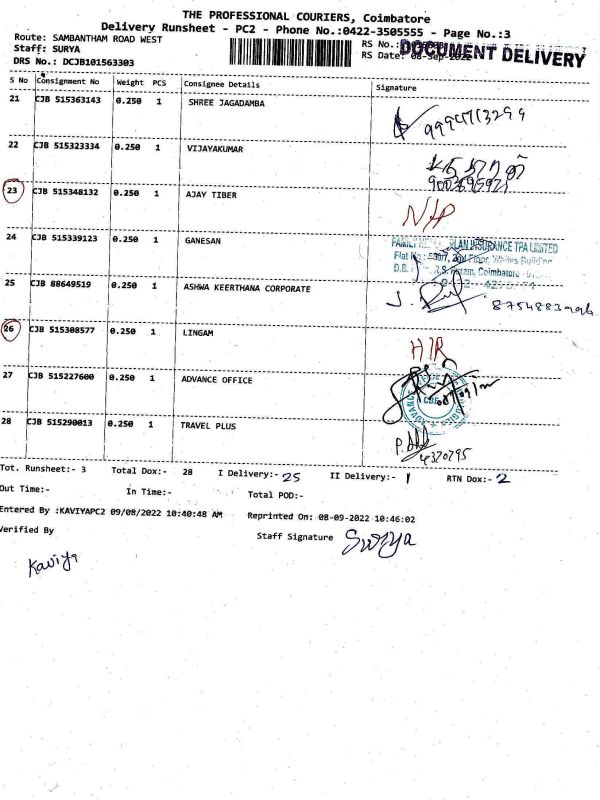 THE PROFESSIONAL COURIERS, Coimbatore
Delivery Runsheet - PC2 - Phone No.:0422-3505555 - Page No.:3
Route: SAMBANTHAM ROAD WEST
RS No.:
DOCUMENT DELIVERY
Staff: SURYA
RS Date: 08-Sep-2022
DRS No.: DCJB101563303
S No Consignment No Weight PCS Consignee Details Signature
21 CJB 515363143 0.250 1 SHREE JAGADAMBA
22 CJB 515323334 0.250 1 VIJAYAKUMAR
23 CJB 515348132 0.250 1 AJAY TIBER
24 CJB 515339123 0.250 1 GANESAN
INSURANCE TPA LIMITED
Coimbatore
25 CJB 88649519 0.250 1 ASHWA KEERTHANA CORPORATE
26 CJB 515308577 0.250 1 LINGAM
27 CJB 515227600 0.250 1 ADVANCE OFFICE
28 CJB 515290013 0.250 1 TRAVEL PLUS
4370795
Tot. Runsheet:- 3 Total Dox:- 28 I Delivery:- 25 II Delivery:- 1 RTN Dox:- 2
Out Time:- In Time:- Total POD:-
Entered By :KAVIYAPC2 09/08/2022 10:40:48 AM Reprinted On: 08-09-2022 10:46:02
Verified By Staff Signature Surya
Kaviya